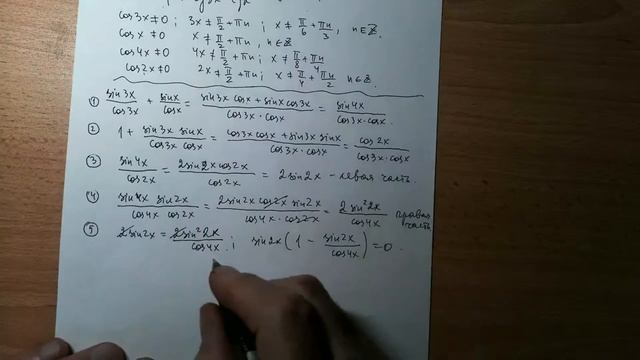 cos3x≠0; 3x≠π/2+πn; x≠π/6+πn/3, n∈ℤ.
cosx≠0 x≠π/2+πn, n∈ℤ
cos4x≠0 4x≠π/2+πn; x≠π/8+πn/4
cos2x≠0 2x≠π/2+πn; x≠π/4+πn/2 n∈ℤ.
① sin3x/cos3x + sinx/cosx = (sin3x cosx + sinx cos3x)/(cos3x·cosx) = sin4x/(cos3x·cosx).
② 1 + (sin3x sinx)/(cos3x cosx) = (cos3x cosx + sin3x sinx)/(cos3x·cosx) = cos2x/(cos3x·cosx)
③ sin4x/cos2x = (2sin2x cos2x)/cos2x = 2sin2x - левая часть.
④ (sin4x sin2x)/(cos4x cos2x) = (2sin2x cos2x sin2x)/(cos4x·cos2x) = 2sin²2x/cos4x правая часть
⑤ 2sin2x = 2sin²2x/cos4x; sin2x(1 - sin2x/cos4x)=0.